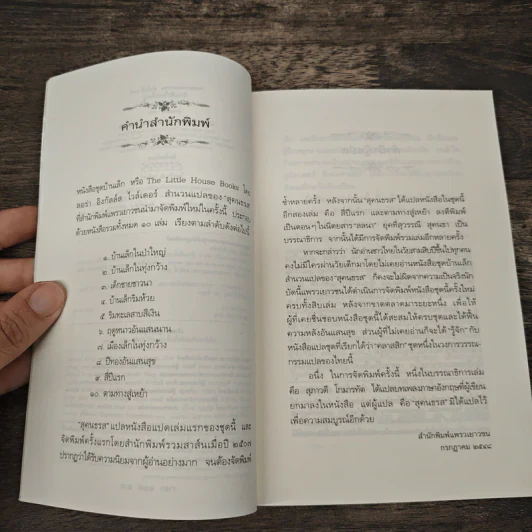 คำนำสำนักพิมพ์
หนังสือชุดบ้านเล็ก หรือ The Little House Books โดย
ลอร่า อิงกัลล์ส ไวล์เดอร์ สำนวนแปลของ "สุคนธรส"
ที่สำนักพิมพ์แพรวเยาวชนนำมาจัดพิมพ์ใหม่ในครั้งนี้ ประกอบ
ด้วยหนังสือรวมทั้งหมด ๑๐ เล่ม เรียงตามลำดับดังต่อไปนี้
๑. บ้านเล็กในป่าใหญ่
๒. บ้านเล็กในทุ่งกว้าง
๓. เด็กชายชาวนา
๔. บ้านเล็กริมห้วย
๕. ริมทะเลสาบสีเงิน
๖. ฤดูหนาวอันแสนนาน
๗. เมืองเล็กในทุ่งกว้าง
๘. ปีทองอันแสนสุข
๙. สี่ปีแรก
๑๐. ตามทางสู่เหย้า
"สุคนธรส" แปลหนังสือแปดเล่มแรกของชุดนี้ และ
จัดพิมพ์ครั้งแรกโดยสำนักพิมพ์รวมสาส์นเมื่อปี
ปรากฏว่าได้รับความนิยมจากผู้อ่านอย่างมาก จนต้องจัดพิมพ์
ซ้ำหลายครั้ง หลังจากนั้น "สุคนธรส" ได้แปลหนังสือในชุดนี้
อีกสองเล่ม คือ สี่ปีแรก และตามทางสู่เหย้า ลงตีพิมพ์
เป็นตอนๆ ในนิตยสาร "ลลนา" ยุคที่สุวรรณี สุคนธา เป็น
บรรณาธิการ จากนั้นได้มีการจัดพิมพ์รวมเล่มอีกหลายครั้ง
หากจะกล่าวว่า นักอ่านชาวไทยในวัยสามสิบปีขึ้นไปทุกคน
คงไม่มีใครผ่านวัยเด็กมาโดยไม่เคยอ่านหนังสือชุดบ้านเล็ก
สำนวนแปลของ "สุคนธรส" ก็คงจะไม่ผิดจากความเป็นจริงนัก
บัดนี้แพรวเยาวชนได้ดำเนินการจัดพิมพ์หนังสือชุดนี้ครั้งใหม่
ครบทั้งสิบเล่ม หลังจากขาดตลาดมาระยะหนึ่ง เพื่อให้
ผู้ที่เคยชื่นชอบหนังสือชุดนี้ได้สะสมให้ครบชุดและได้ฟื้น
ความหลังอันแสนสุข ส่วนผู้ที่ไม่เคยอ่านก็จะได้ "รู้จัก" กับ
หนังสือแปลชุดที่เรียกได้ว่า "คลาสสิก" ชุดหนึ่งในวงการวรรณ-
กรรมแปลของไทยนี้
อนึ่ง ในการจัดพิมพ์ครั้งนี้ หนึ่งในบรรณาธิการเล่ม
คือ สุภาวดี โกมารทัต ได้แปลบทเพลงภาษาอังกฤษที่ผู้เขียน
ยกมาลงในหนังสือ แต่ผู้แปล คือ "สุคนธรส" มิได้แปลไว้
เพื่อความสมบูรณ์อีกด้วย
สำนักพิมพ์แพรวเยาวชน
กรกฎาคม ๒๕๔๔